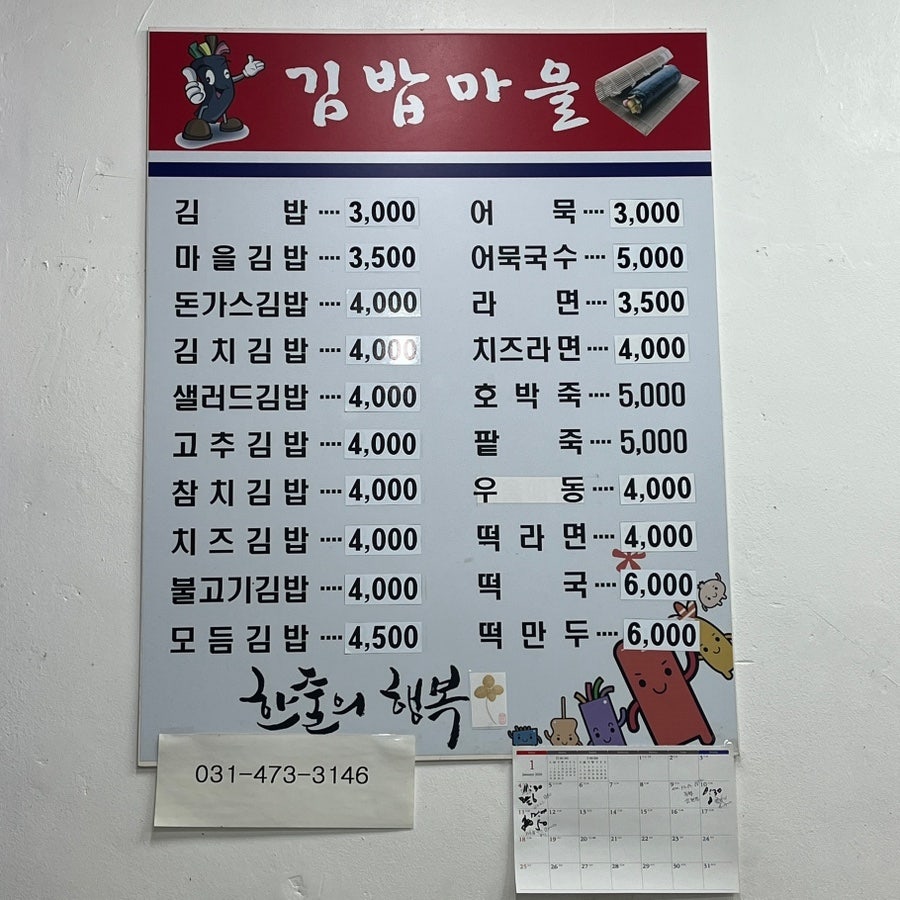 김밥마을
김 밥 ···· 3,000
마을김밥 ···· 3,500
돈가스김밥 ···· 4,000
김치김밥 ···· 4,000
샐러드김밥 ···· 4,000
고추김밥 ···· 4,000
참치김밥 ···· 4,000
치즈김밥 ···· 4,000
불고기김밥 ···· 4,000
모듬김밥 ···· 4,500
어 묵 ···· 3,000
어묵국수 ···· 5,000
라 면 ···· 3,500
치즈라면 ···· 4,000
호박죽 ···· 5,000
팥 죽 ···· 5,000
우 동 ···· 4,000
떡라면 ···· 4,000
떡 국 ···· 6,000
떡만두 ···· 6,000
한줄의 행복
031-473-3146
1
1 2 3
5 6 7 8 9 10
11 12 13 14 15 16 17
18 19 20 21 22 23 24
25 26 27 28 29 30 31